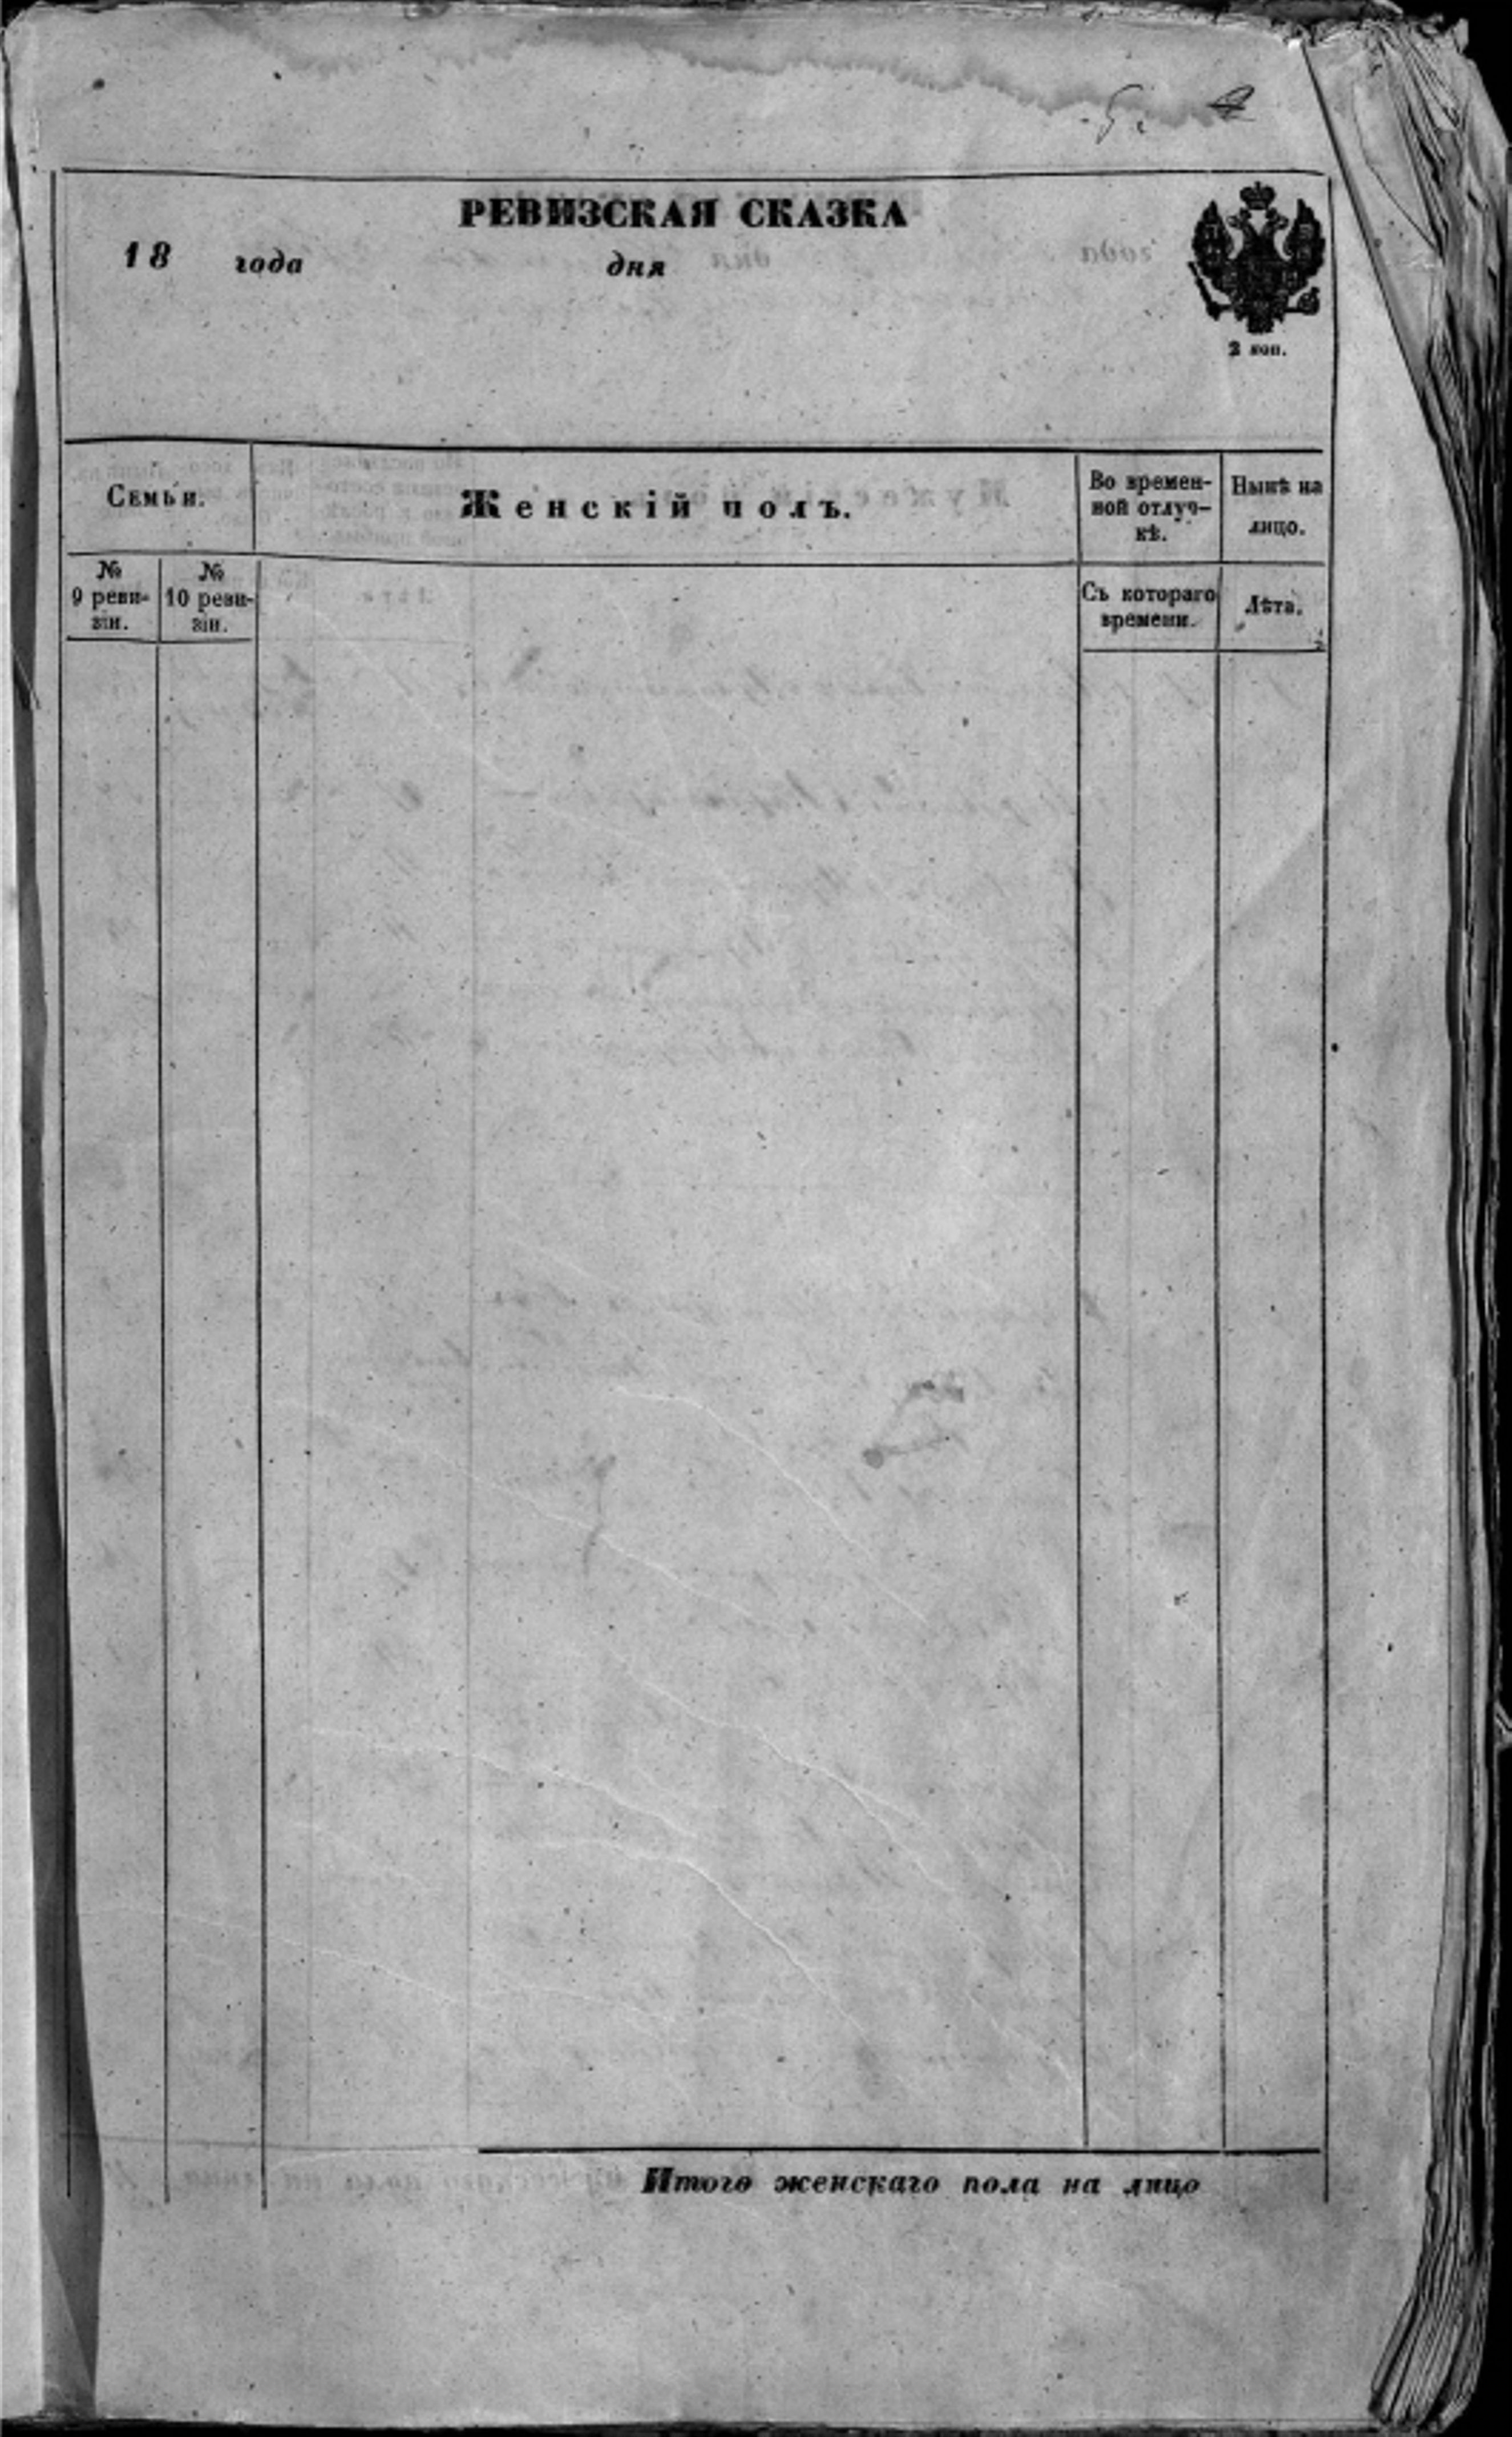 РЕВИЗСКАЯ СКАЗКА
18 года дня
2 коп.
Семьи.
Женскій полъ.
Во времен-
ной отлуч-
кѣ.
Нынѣ на
лицо.
№
9 реви-
зіи.
№
10 реви-
зіи.
Съ котораго
времени.
Лѣта.
Итого женскаго пола на лицо